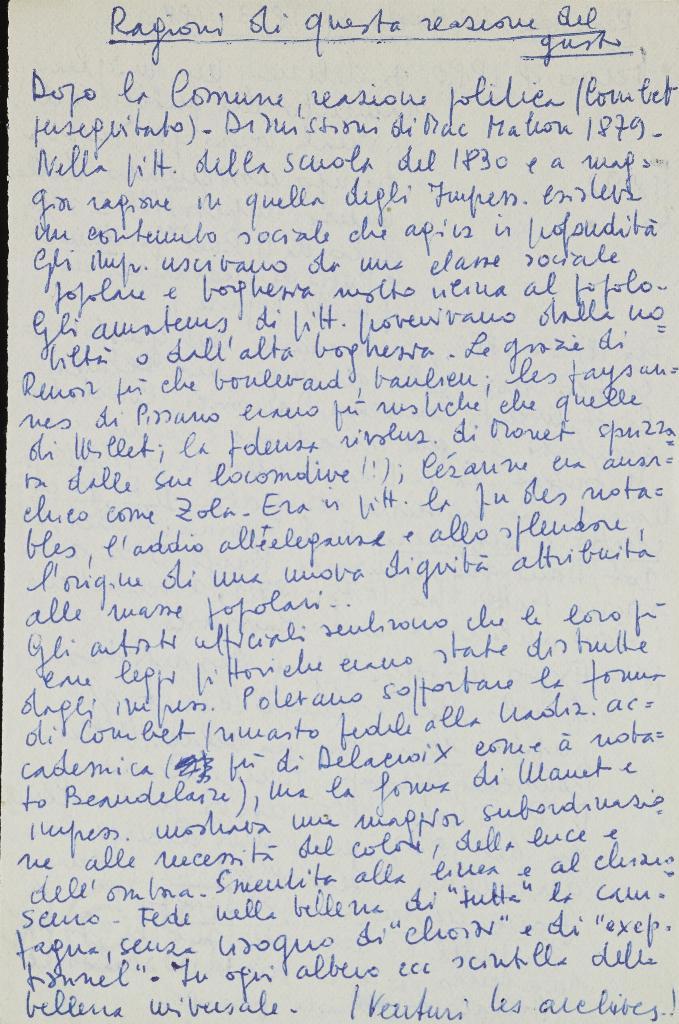 Ragioni di questa reazione del
gusto.
Dopo la Comune, reazione politica (Courbet
perseguitato) - Dimissioni di Mac Mahon 1879 -
Nella pitt. della scuola del 1830 e a mag-
gior ragione in quella degli Impress. esisteva
un contenuto sociale che agiva in profondità
Gli imp. uscivano da una classe sociale
popolare e borghesia molto vicina al popolo -
Gli amateurs di pitt. provenivano dalla no=
biltà o dall'alta borghesia. Le grazie di
Renoir più che boulevard, banlieu; les paysan=
nes di Pissarro erano più rustiche che quelle
di Millet; la potenza rivoluz. di Monet sprizza=
va dalle sue locomotive (!); Cézanne era anar=
chico come Zola - Era in pitt. la fin des nota=
bles, l'addio all'eleganza e allo splendore,
l'origine di una nuova dignità attribuita
alle masse popolari..
Gli artisti ufficiali sentirono che le loro più
care leggi pittoriche erano state distrutte
dagli impress. Potevano sopportare la forma
di Courbet rimasto fedele alla tradiz. ac=
cademica (più di Delacroix come à nota=
to Beaudelaire), ma la forma di Manet e
impress. mostrava una maggior subordinazio=
ne alle necessità del colore, della luce e
dell'ombra. Smentita alla linea e al chiaro
scuro - Fede nella bellezza di "tutta" la cam=
pagna, senza bisogno di "choisir" e di "excep-
tionnel" - In ogni albero ecc scintilla della
bellezza universale - (Venturi les archives.)